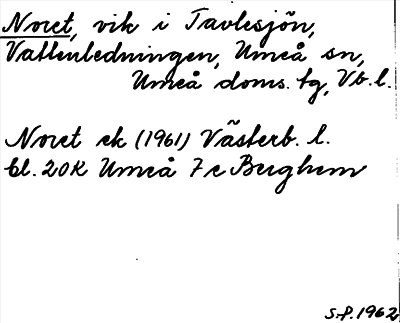 Noret, vik i Tavlesjön,
Vattenledningen, Umeå sn,
Umeå doms. tg, Vb. l.
Noret ek (1961) Västerb. l.
bl. 20K Umeå 7c Berghem
S.P. 1962